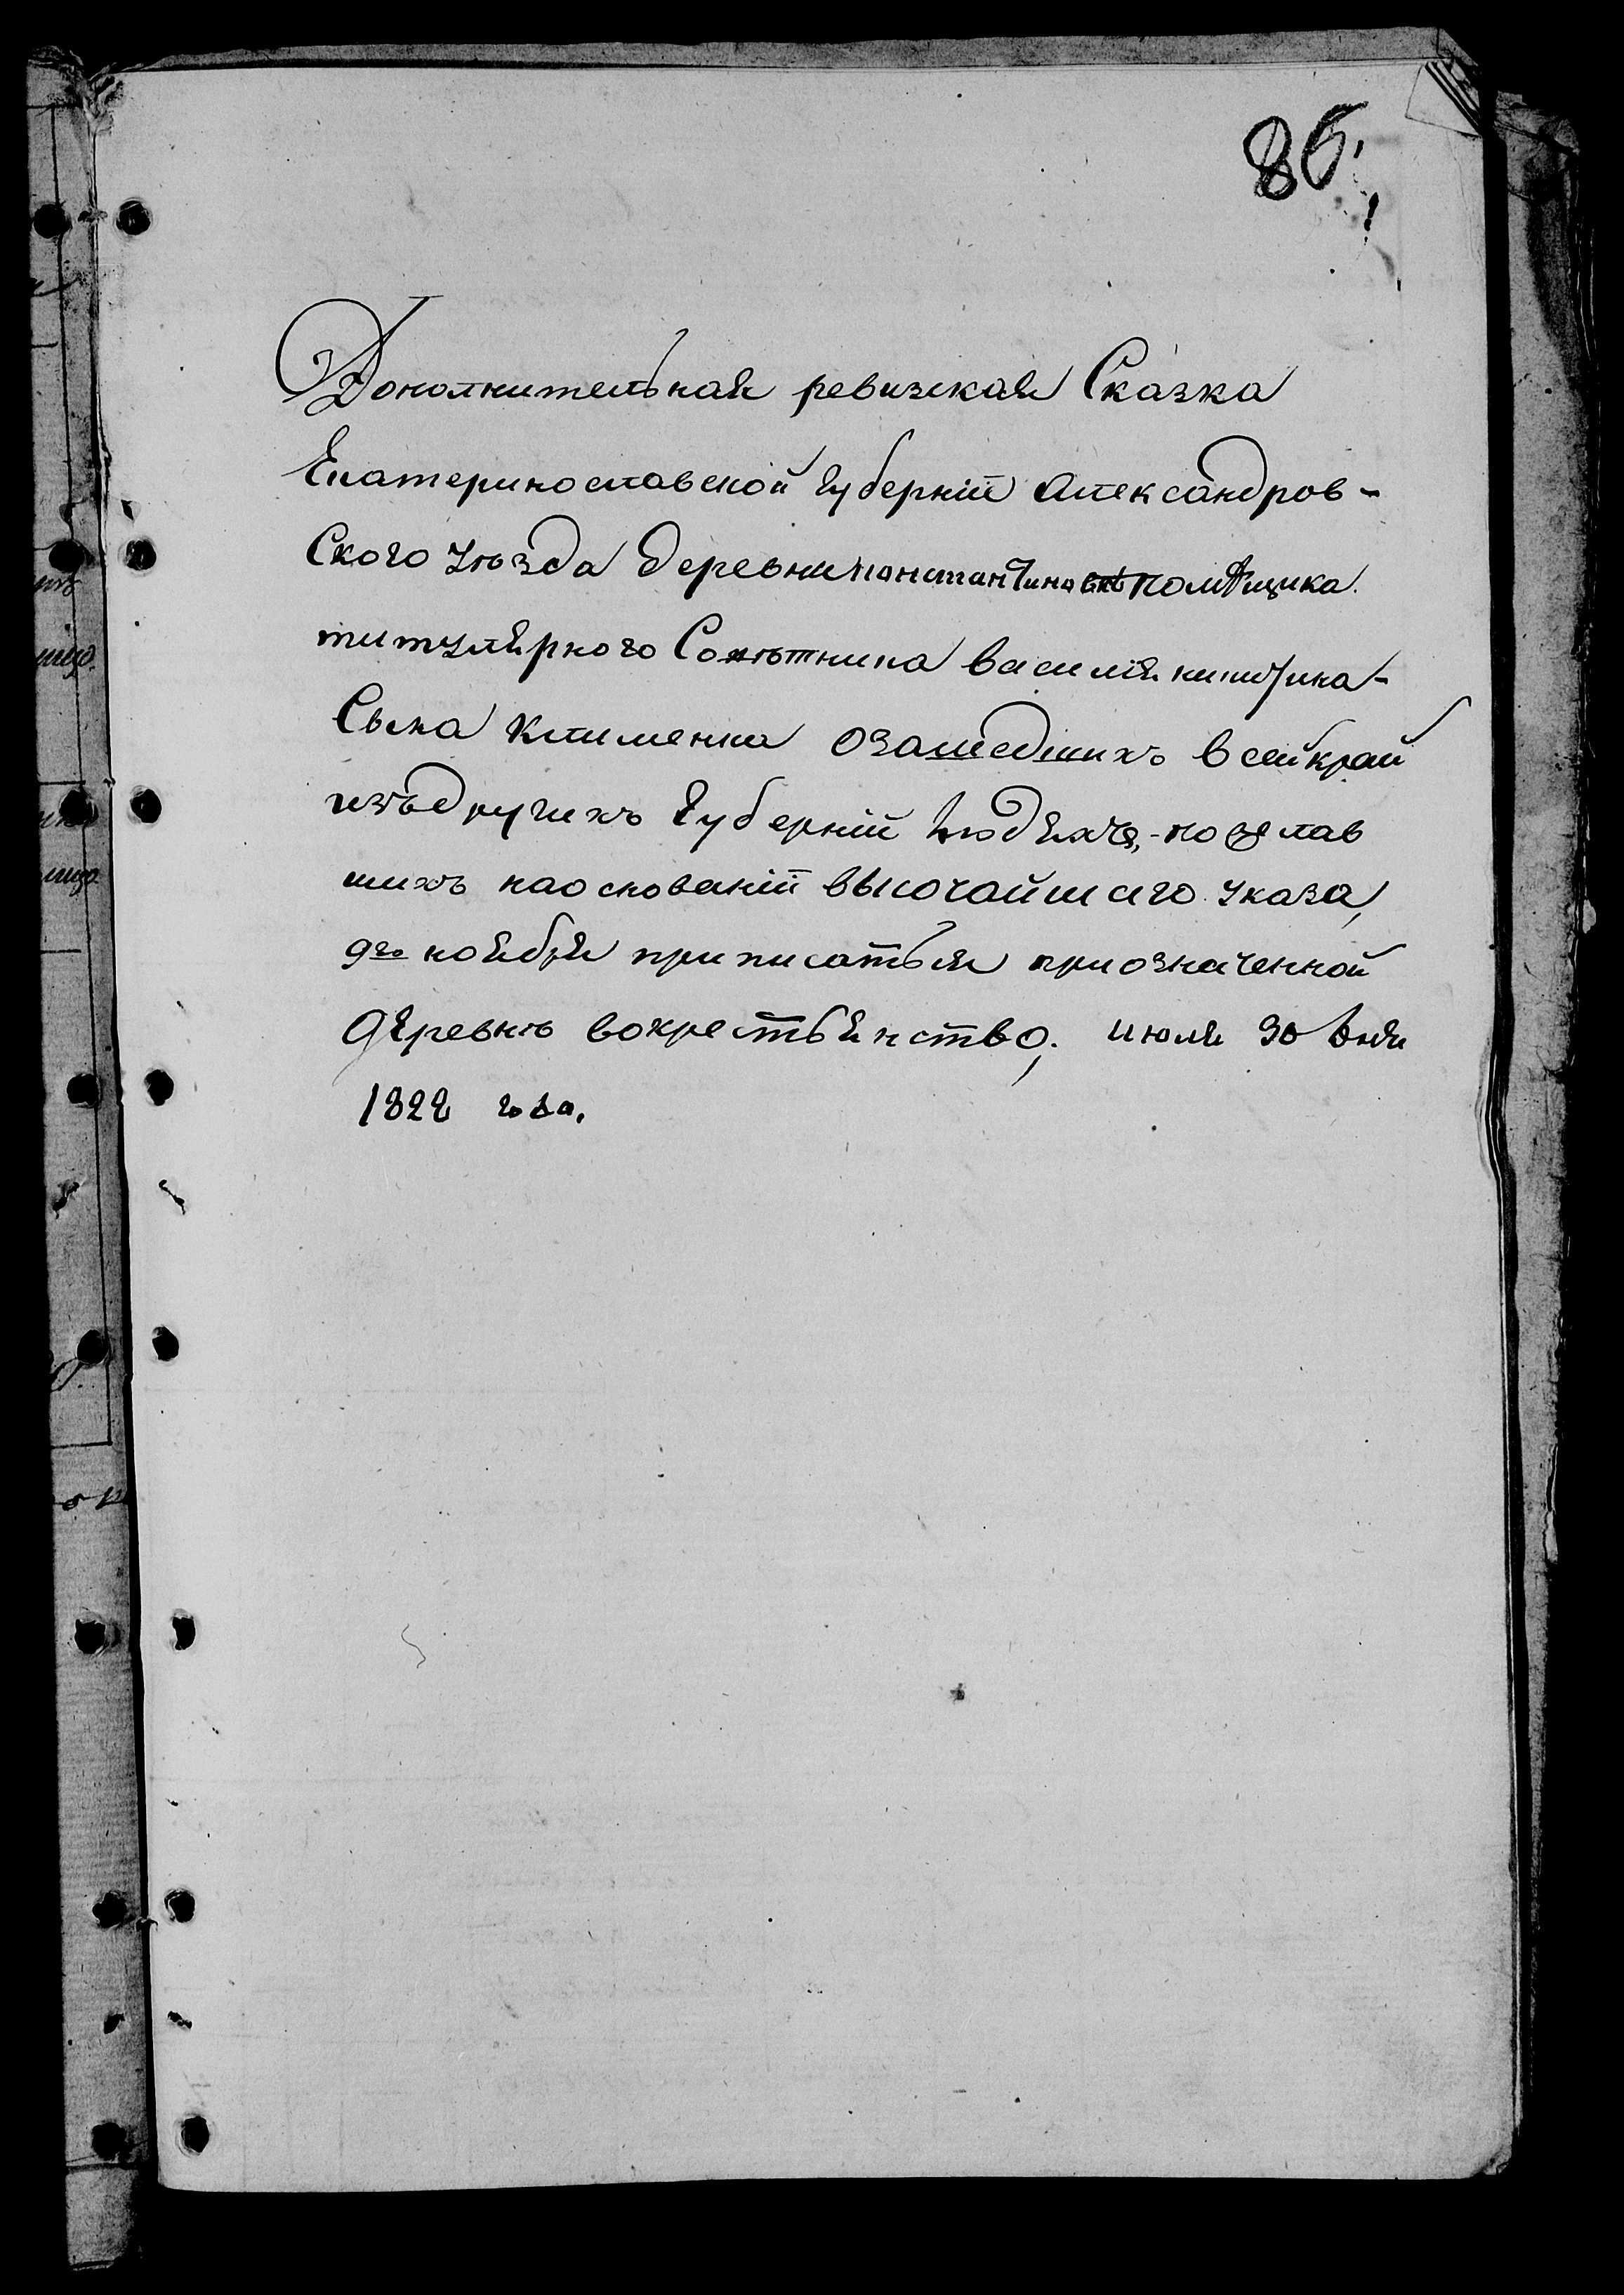 86
Дополнительная ревизская Сказка
Екатеринославской Губерніи Александров-
Ского уѣзда деревни константиновки помѣщика
титулярного Совѣтника василія
Сына Клименка озашедшихъ в сей край
изъдругихъ Губерній людяхъ, - поже лав
шихъ наоснованіи высочайшаго указа,
9го ноября приписаться приозначенной
деревнѣ вокрестьянство, июля 30 дня
1822 года.